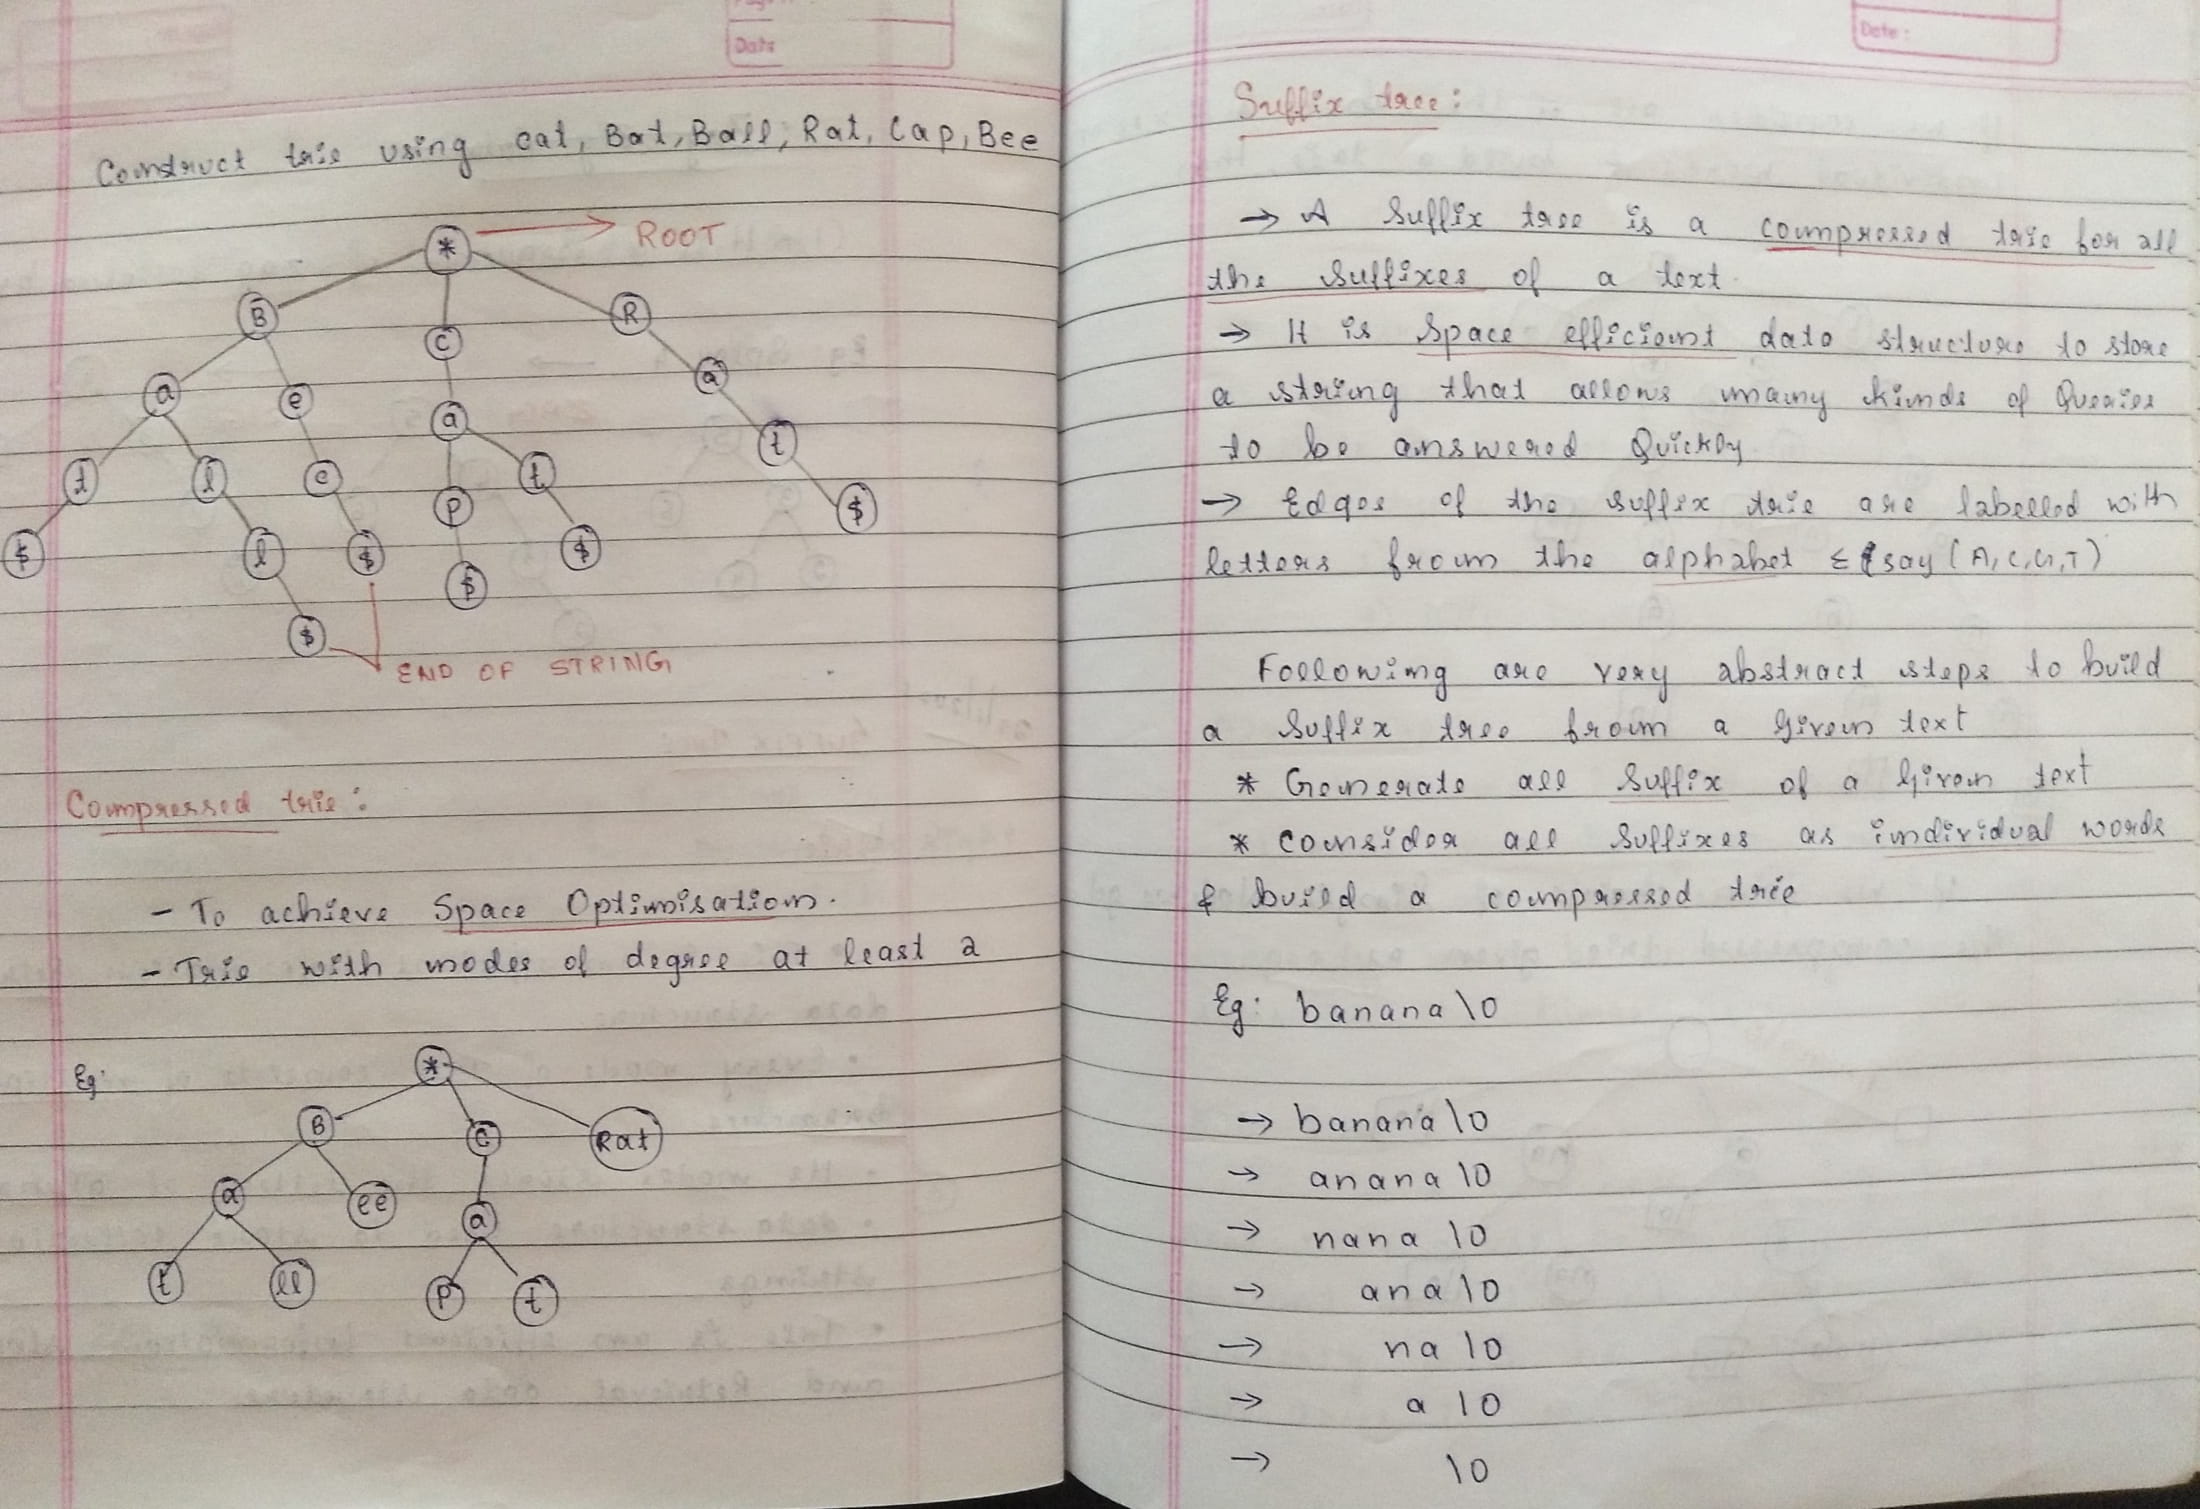 Page No.
Date
Construct trie using cat, Bat, Ball, Rat, Cap, Bee
* ROOT
B C R
a e a a
t l e p t t
$ l $ $ $ $
$
END OF STRING
Compressed trie:
- To achieve Space Optimisation.
- Trie with nodes of degree at least 2
Eg:
*
B C Rat
a ee a
t ll p t
Date:
Suffix tree:
→ A Suffix tree is a compressed trie for all
the suffixes of a text.
→ It is space efficient data structure to store
a string that allows many kinds of Queries
to be answered Quickly
→ Edges of the suffix trie are labelled with
letters from the alphabet Σ say (A, C, G, T)
Following are very abstract steps to build
a Suffix tree from a given text
* Generate all suffix of a Given text
* Consider all suffixes as individual words
& build a compressed trie
Eg: banana\0
→ banana\0
→ anana\0
→ nana\0
→ ana\0
→ na\0
→ a\0
→ \0